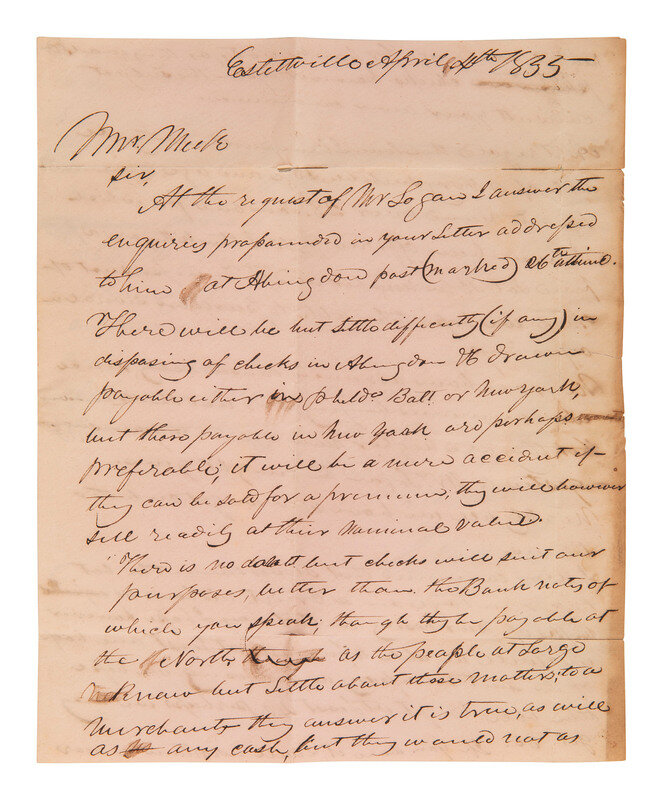 Estillville April 4th 1835
Mr. Meek
Sir,
At the request of Mr Logan I answer the
enquiries propounded in your Letter addressed
to him at Abingdon post (marked) 26th ultimo.
There will be but little difficulty (if any) in
disposing of checks in Abingdon if drawn
payable either in Phelda Balt. or New York,
but those payable in New York are perhaps
preferable; it will be a mere accident if
they can be sold for a premium; they will however
sell readily at their Nominal value.
There is no doubt but checks will suit our
purposes, better than the Bank notes of
which you speak, though they be payable at
the North as the people at Large
know but little about those matters; to a
merchant they answer it is true, as well
as any cash, but they would not as